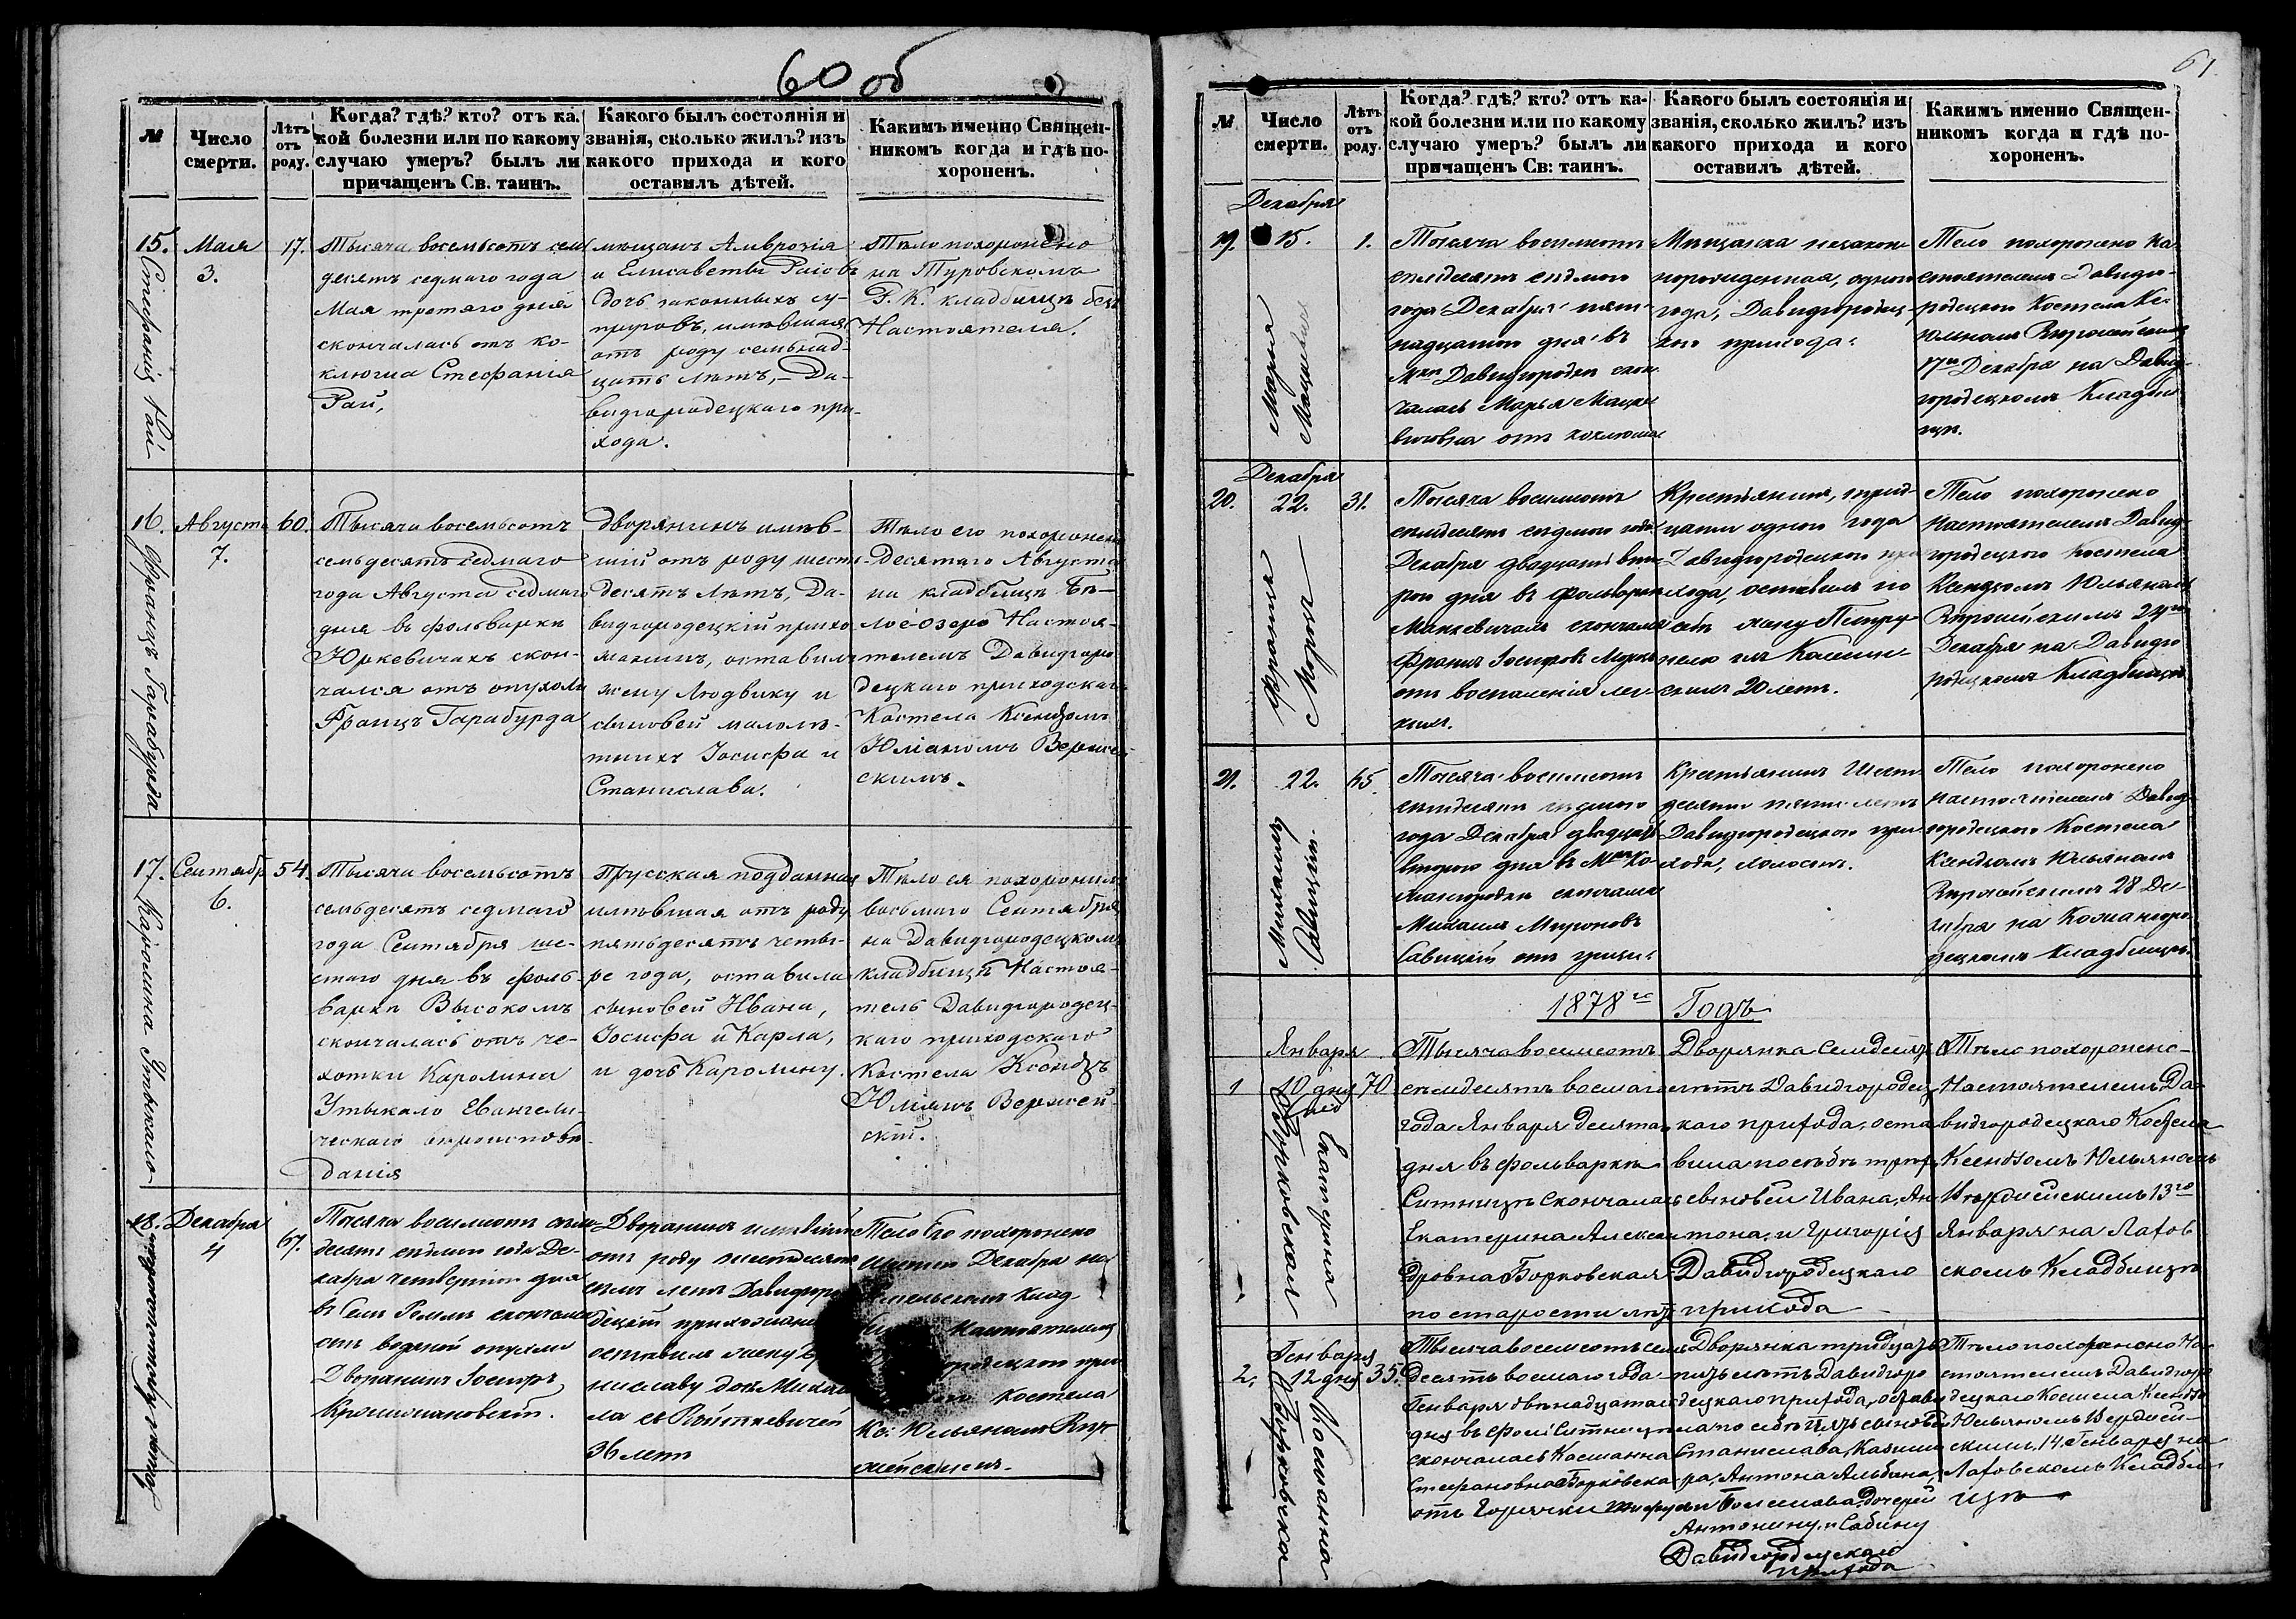 60 об
№
Число
смерти.
Лѣтъ
отъ
роду.
Когда? гдѣ? кто? отъ ка-
кой болезни или по какому
случаю умеръ? былъ ли
причащенъ Св. таинъ.
Какого былъ состоянія и
званія, сколько жилъ? изъ
какого прихода и кого
оставилъ дѣтей.
Какимъ именно Священ-
никомъ когда и гдѣ по-
хороненъ.
15.
Стефанія Рай
Мая
3.
17.
Тысяча восемьсотъ сем
десятъ седмаго года
Мая третяго дня
скончалась отъ ко-
клюша Стефанія
Рай,
мещанъ Амврозія
и Елисаветы Раіовъ
дочь законныхъ су-
пруговъ, имѣвшая
отъ роду семьнад-
цать лѣтъ, – Да-
видгородецкаго при-
хода.
Тѣло похоронено
на Туровскомъ
Р. К. кладбищѣ безъ
Настоятеля.
16.
Францъ Гарабурда
Августа
7.
60.
Тысяча восемьсотъ
семьдесятъ седмаго
года Августа седмаго
дня въ фольваркѣ
Юркевичахъ скон-
чался отъ опухоли
Францъ Гарабурда
Дворянинъ имѣв-
шій отъ роду шесть
десятъ лѣтъ, Да-
видгородецкій прихо
жанинъ, оставилъ
жену Людвику и
сыновей малолѣ-
тнихъ Іосифа и
Станислава.
Тѣло его похоронено
Десятаго Августа
на кладбищѣ Бѣ-
лое-озеро Настоя-
телемъ Давидгоро
децкаго приходскаго
Костела Ксендзомъ
Юліаномъ Вержей-
скимъ.
17.
Каролина Утыкало
Сентябр
6.
54
Тысяча восемьсотъ
семьдесятъ седмаго
года Сентября ше-
стаго дня въ фоль-
варкѣ Высокомъ
скончалась отъ че-
хотки Каролина
Утыкало Евангели-
ческаго вѣроисповѣ
данія
Прусская подданная
имѣвшая отъ роду
пятьдесятъ четы-
ре года, оставила
сыновей Ивана,
Іосифа и Карла,
и дочь Каролину.
Тѣло ея похоронилъ
восьмаго Сентября
на Давидгородецкомъ
кладбищѣ Настоя-
тель Давидгородец-
каго приходскаго
Костела Ксендзъ
Юліанъ Вержей-
скій.
18.
Декабря
4
67.
Тысяча восемьсотъ семь
десятъ седмаго года Де-
кабря четвертаго дня
въ Селѣ скончался
отъ водяной опухоли
Дворянинъ Іосифъ
Дворянинъ имѣвшій
отъ роду шестьдесятъ
семь летъ Давидгоро
децкій прихожанинъ
оставилъ жену
ниславу дочь Михаи
ла съ Войткевичей
36 летъ
Тело его похоронено
Шестаго Декабря на
Клад
Настоятелемъ
городецкого при
Костела
Кс: Юльяномъ Вер
жейскимъ.
61.
№
Число
смерти.
Лѣтъ
отъ
роду.
Когда? гдѣ? кто? отъ ка-
кой болезни или по какому
случаю умеръ? былъ ли
причащенъ Св: таинъ.
Какого былъ состоянія и
званія, сколько жилъ? изъ
какого прихода и кого
оставилъ дѣтей.
Какимъ именно Священ-
никомъ когда и гдѣ по-
хороненъ.
Декабря
19.
15.
Марья
1.
Тысяча восемьсотъ
семдесятъ седмого
года Декабря пят-
надцатого дня въ
Мкѣ Давидгородкѣ скон
чалась Марья Мацке
вичовна отъ коклюша
Мещанка незаконо
порожденная, одного
года, Давидгородец-
кого прихода.
Тело похоронено На-
стоятелемъ Давидго-
родецкого Костела Кс:
Юльяномъ Вержейскимъ
17го Декабря на Давид-
городецкомъ Кладби
щѣ.
Декабря
20.
22.
31.
Тысяча восемьсотъ
семдесятъ седмого года
Декабря двадцать вто
рого дня въ Фольваркѣ
скончался
Францъ Іосифовъ
отъ воспаленія лег
кихъ.
Крестьянинъ, трид-
цати одного года
Давидгородецкого при
хода, оставилъ по
себѣ жену Петру
нелю изъ
20 летъ.
Тело похоронено
Настоятелемъ Давид-
городецкого Костела
Ксендзомъ Юльяномъ
Вержейскимъ 24го
Декабря на Давидго
родецкомъ Кладбищѣ
21.
22.
65.
Михаилъ
Савицкій
Тысяча восемьсотъ
семдесятъ седмого
года Декабря двадцать
второго дня въ Мкѣ Ко
жангородкѣ скончался
Михаилъ Мироновъ
Савицкій отъ
Крестьянинъ Шест
десяти пяти летъ
Давидгородецкого при
хода, холостъ.
Тело похоронено
настоятелемъ Давид-
городецкого Костела
Ксендзомъ Юльяномъ
Вержейскимъ 28 Де-
кабря на Кожангоро
децкомъ Кладбищѣ.
1878го Годъ
Января
1
10 дня
70
Екатерина
Борковская
Тысяча восемсотъ
семдесятъ восмаго
года Января десята
дня въ фольваркѣ
Ситницѣ скончалась
Екатерина Алексан
дровна Борковская
по старости лѣтъ
Дворянка Семдесятъ
лѣтъ Давидгородец
каго прихода, оста
вила по себѣ трехъ
сыновей Ивана, Ан
тона, и Григорія
Давидгородецкаго
прихода
Тѣло похоронено
Настоятелемъ Да-
видгородецкаго Костела
Ксендзомъ Юльяномъ
Вержейскимъ 13го
Января на Лахов
скомъ Кладбищѣ
2.
Генваря
12 дня
35.
Тысяча восемсотъ сем
десятъ восмаго года
Генваря двѣнадцатаго
дня въ фол: Ситницѣ
скончалась
Стефановна Борковска
отъ Горячки
Дворянка тридцать
пять лѣтъ Давидгоро
децкаго прихода, остави
ла по себѣ пять сыновей
Станислава, Казими
ра, Антона Альбина,
Болеслава, дочерей
Антонину, и Сабину
Давидгородецкаго
прихода
Тѣло похоронено На-
стоятелемъ Давидгоро
децкаго Костела Ксендзо
Юльяномъ Вержей-
скимъ, 14 Генваря на
Лаховскомъ Кладби-
щѣ